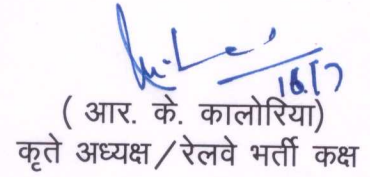 16/7
( आर. के. कालोरिया)
कृते अध्यक्ष/रेलवे भर्ती कक्ष